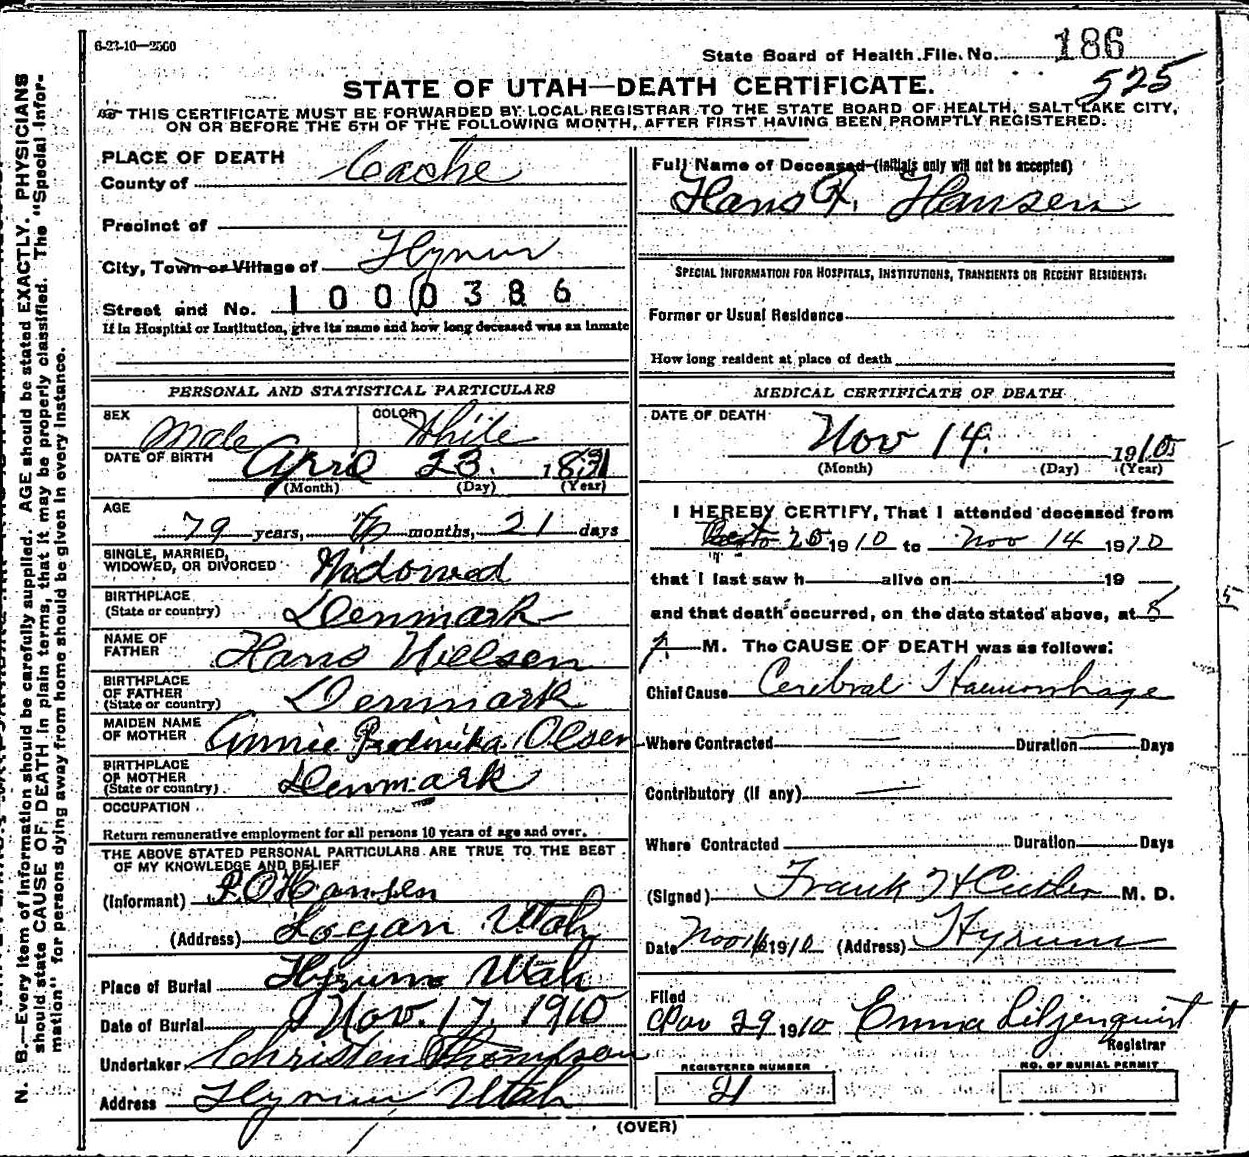 6-23-10—2500
State Board of Health File. No. 186
525
STATE OF UTAH—DEATH CERTIFICATE.
THIS CERTIFICATE MUST BE FORWARDED BY LOCAL REGISTRAR TO THE STATE BOARD OF HEALTH, SALT LAKE CITY,
ON OR BEFORE THE 5TH OF THE FOLLOWING MONTH, AFTER FIRST HAVING BEEN PROMPTLY REGISTERED.
PLACE OF DEATH
County of Cache
Precinct of
City, Town or Village of Hyrum
Street and No. 1000386
If in Hospital or Institution, give its name and how long deceased was an inmate
PERSONAL AND STATISTICAL PARTICULARS
SEX Male COLOR White
DATE OF BIRTH April 23. 1831
(Month) (Day) (Year)
AGE
79 years, 6 months, 21 days
SINGLE, MARRIED,
WIDOWED, OR DIVORCED Widowed
BIRTHPLACE
(State or country) Denmark
NAME OF
FATHER Hans Nielsen
BIRTHPLACE
OF FATHER
(State or country) Denmark
MAIDEN NAME
OF MOTHER Annie Olsen
BIRTHPLACE
OF MOTHER
(State or country) Denmark
OCCUPATION
Return remunerative employment for all persons 10 years of age and over.
THE ABOVE STATED PERSONAL PARTICULARS ARE TRUE TO THE BEST
OF MY KNOWLEDGE AND BELIEF
(Informant) P. O. Hansen
(Address) Logan Utah
Place of Burial Hyrum Utah
Date of Burial Nov. 17. 1910
Undertaker Christen Thompson
Address Hyrum Utah
Full Name of Deceased (Initials only will not be accepted)
Hans F. Hansen
SPECIAL INFORMATION FOR HOSPITALS, INSTITUTIONS, TRANSIENTS OR RECENT RESIDENTS:
Former or Usual Residence
How long resident at place of death
MEDICAL CERTIFICATE OF DEATH
DATE OF DEATH
Nov 14. 1910
(Month) (Day) (Year)
I HEREBY CERTIFY, That I attended deceased from
1910 to Nov 14 1910
that I last saw h alive on 19
and that death occurred, on the date stated above, at 8
M. The CAUSE OF DEATH was as follows:
Chief Cause Cerebral Haemorrhage
Where Contracted Duration Days
Contributory (if any)
Where Contracted Duration Days
(Signed) Frank H Cutler M. D.
Date Nov 16 1910 (Address) Hyrum
Filed
Nov 29 1910 Emma Liljenquist
Registrar
REGISTERED NUMBER NO. OF BURIAL PERMIT
21
(OVER)
N. B.—Every item of information should be carefully supplied. AGE should be stated EXACTLY. PHYSICIANS
should state CAUSE OF DEATH in plain terms, that it may be properly classified. The "Special Infor-
mation" for persons dying away from home should be given in every instance.